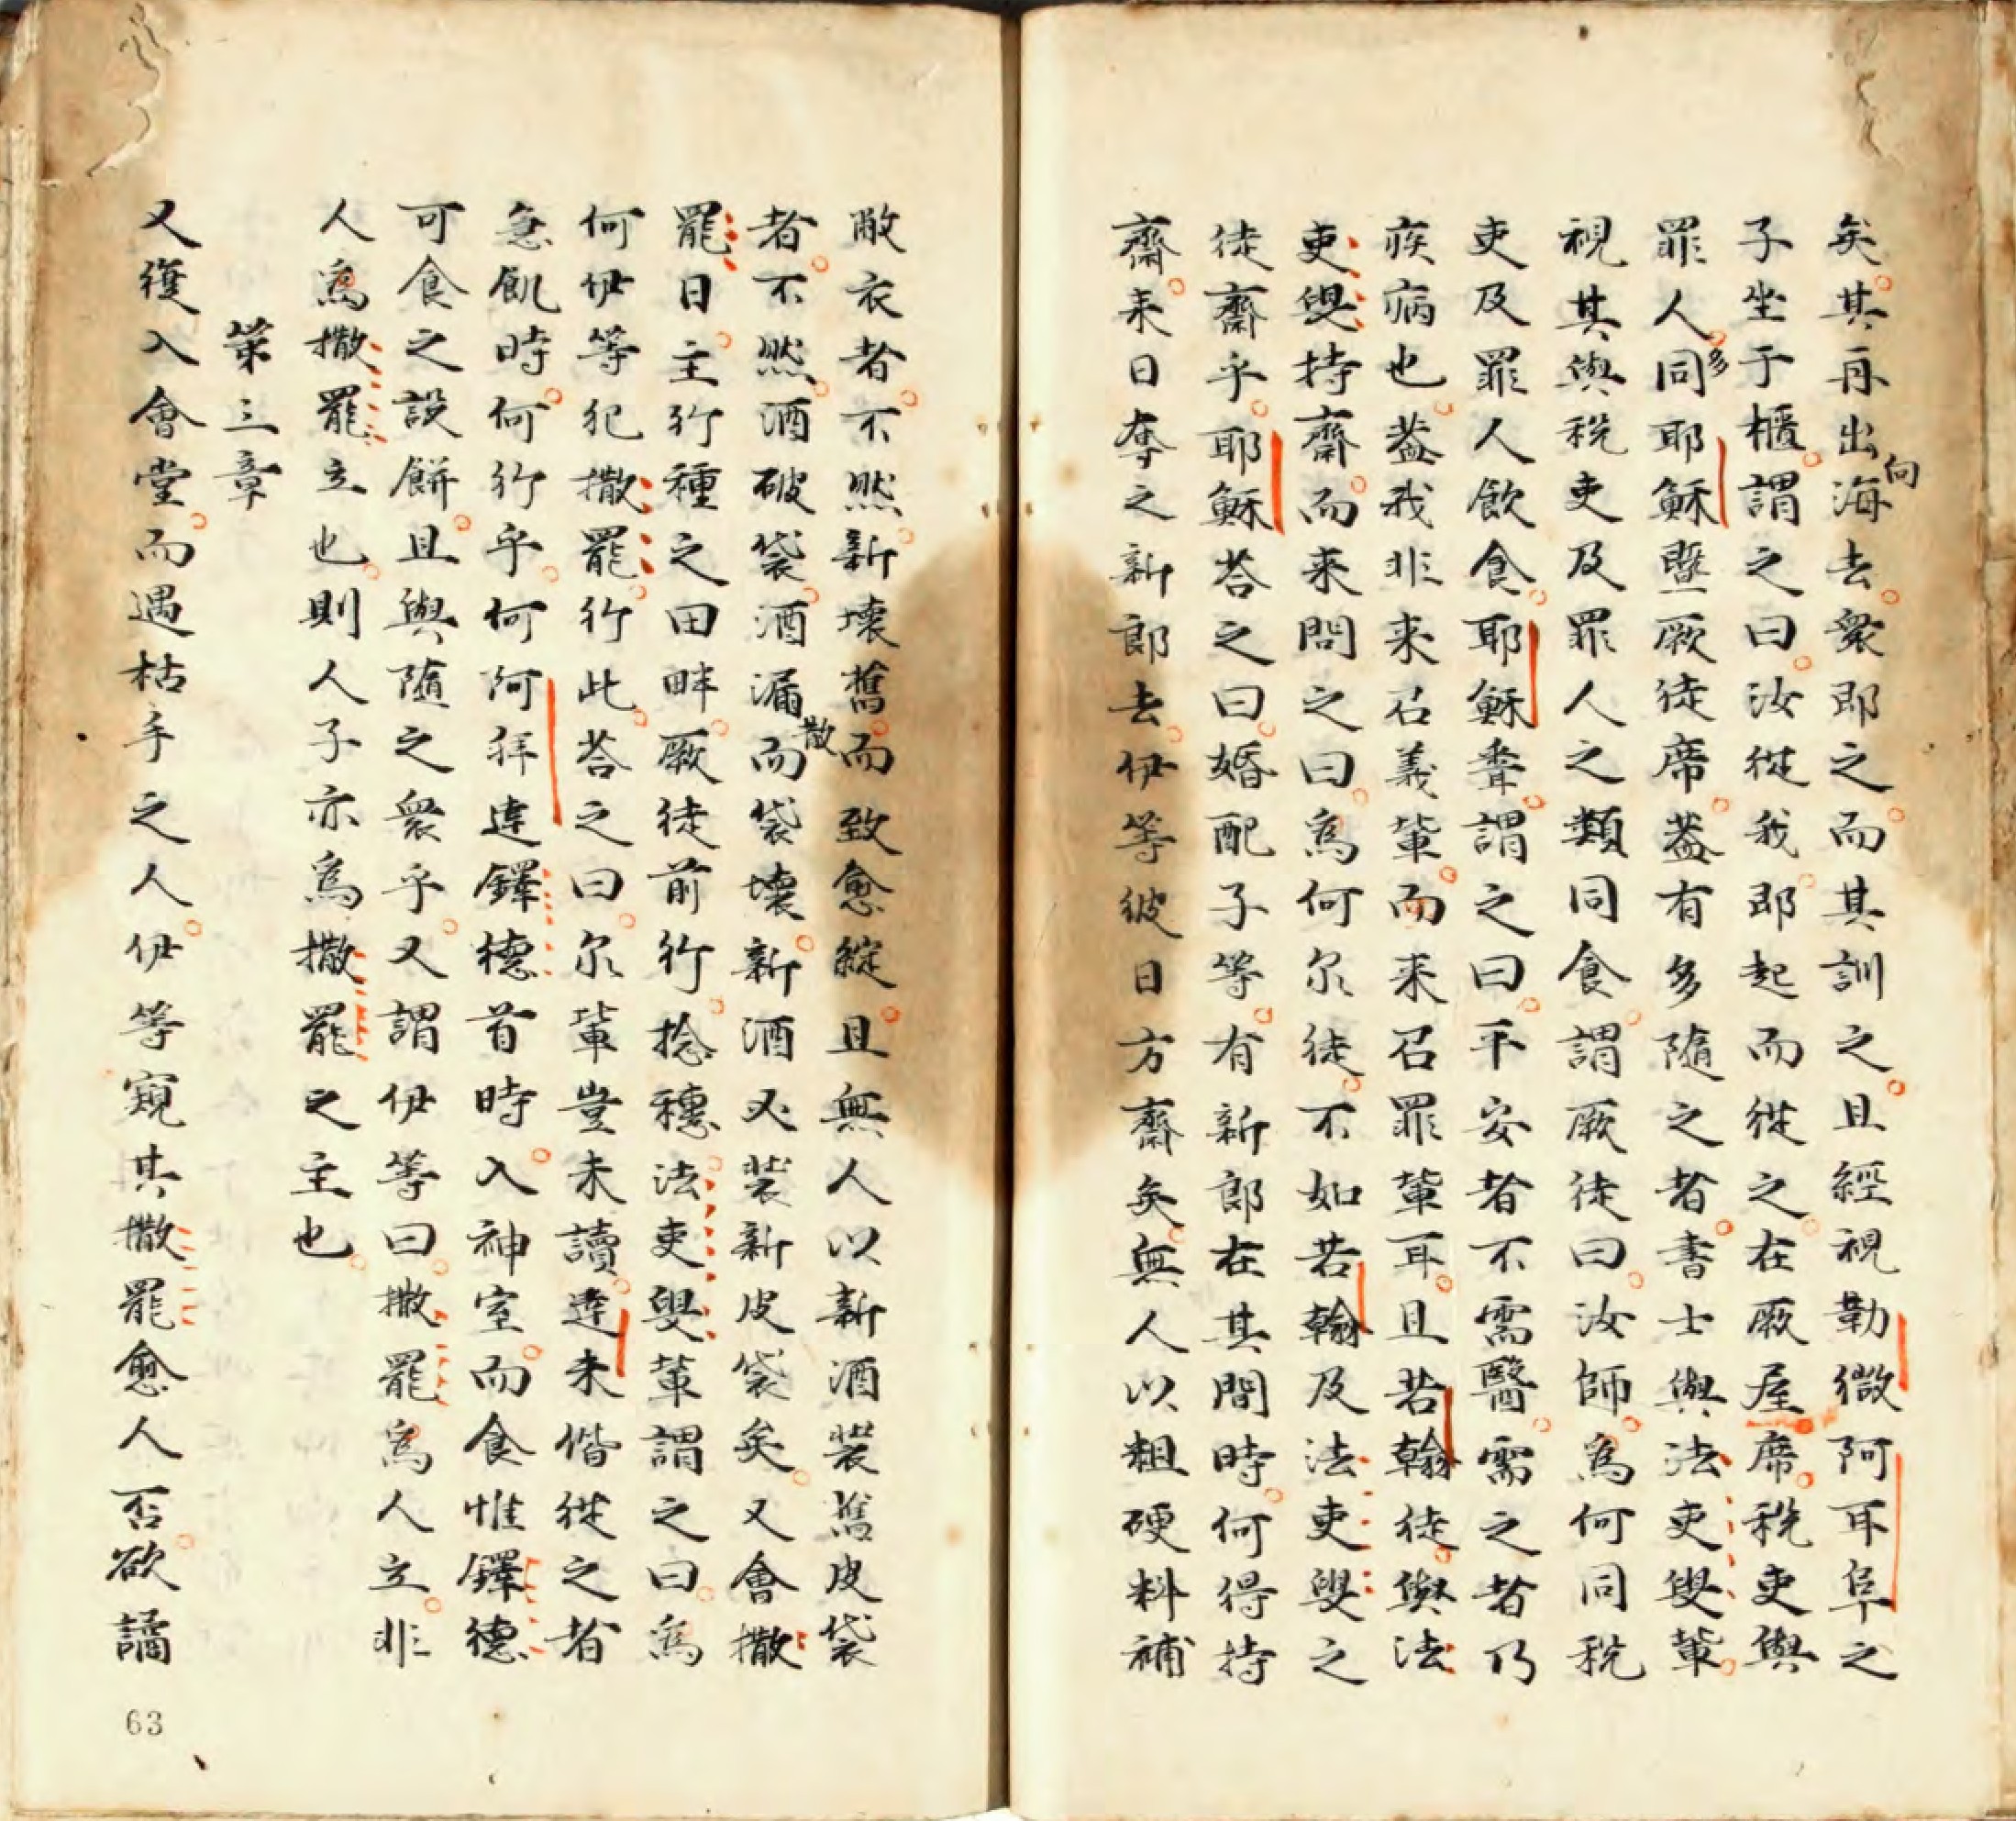 矣其再出向海去衆即之而其訓之且經視勒微阿耳阜之
子坐于櫃謂之曰汝從我即起而從之在厥屋席稅吏與
罪人多同耶穌曁厥徒席葢有多隨之者書士與法吏叟輩
視其與稅吏及罪人之類同食謂厥徒曰汝師爲何同稅
吏及罪人飲食耶穌聋謂之曰平安者不需醫需之者乃
疾病也葢我非来召義輩而来召罪輩耳且若翰徒與法
吏叟持齋而来問之曰爲何尔徒不如若翰及法吏叟之
徒齋乎耶穌荅之曰婚配子等有新郎在其間時何得持
齋来日奪之新郎去伊等彼日方齋矣無人以粗硬料補
敝衣者不然新壞舊而致愈綻且無人以新酒裝舊皮袋
者不然酒破袋酒漏散而袋壞新酒必裝新皮袋矣又會撒
罷日主行種之田畔厥徒前行捻穗法吏叟輩謂之曰爲
何伊等犯撒罷行此荅之曰尔輩豈未讀達未偕從之者
急飢時何行乎何阿拜達鐸德首時入神室而食惟鐸德
可食之設餅且與隨之衆乎又謂伊等曰撒罷爲人立非
人爲撒罷立也則人子亦爲撒罷之主也
第三章
又復入會堂而遇枯手之人伊等窺其撒罷愈人否欲譎
63